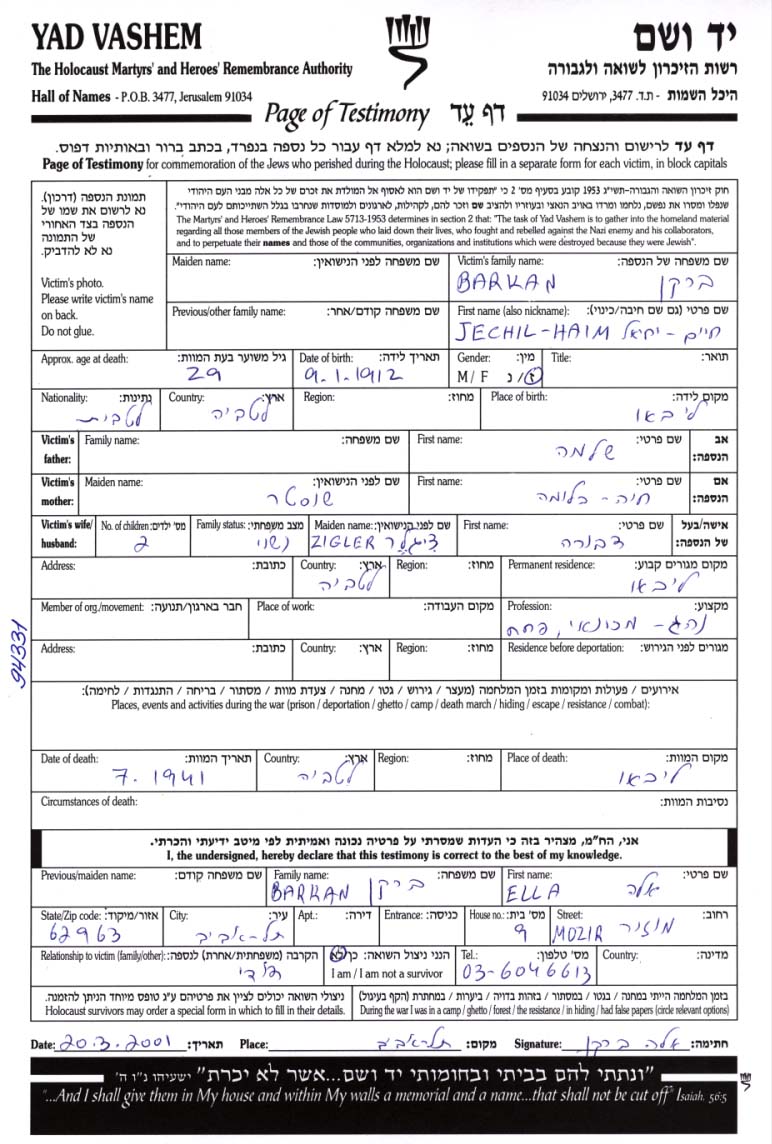 YAD VASHEM
יד ושם
The Holocaust Martyrs' and Heroes' Remembrance Authority
רשות הזיכרון לשואה ולגבורה
Hall of Names - P.O.B. 3477, Jerusalem 91034
היכל השמות - ת.ד. 3477, ירושלים 91034
Page of Testimony דף עֵד
דף עד לרישום והנצחה של הנספים בשואה; נא למלא דף עבור כל נספה בנפרד, בכתב ברור ובאותיות דפוס.
Page of Testimony for commemoration of the Jews who perished during the Holocaust; please fill in a separate form for each victim, in block capitals
תמונת הנספה (דרכון).
נא לרשום את שמו של
הנספה בצד האחורי
של התמונה
נא לא להדביק.
Victim's photo.
Please write victim's name
on back.
Do not glue.
חוק זיכרון השואה והגבורה-תשי"ג 1953 קובע בסעיף מס' 2 כי "תפקידו של יד ושם הוא לאסוף אל המולדת את זכרם של כל אלה מבני העם היהודי
שנפלו ומסרו את נפשם, נלחמו ומרדו באויב הנאצי ובעוזריו ולהציב שם וזכר להם, לקהילות, לארגונים ולמוסדות שנחרבו בגלל השתייכותם לעם היהודי".
The Martyrs' and Heroes' Remembrance Law 5713-1953 determines in section 2 that: "The task of Yad Vashem is to gather into the homeland material
regarding all those members of the Jewish people who laid down their lives, who fought and rebelled against the Nazi enemy and his collaborators,
and to perpetuate their names and those of the communities, organizations and institutions which were destroyed because they were Jewish".
Maiden name: שם משפחה לפני הנישואין:
Victim's family name: שם משפחה של הנספה:
BARKAN ברקן
Previous/other family name: שם משפחה קודם/אחר:
First name (also nickname): שם פרטי (גם שם חיבה/כינוי):
JECHIL-HAIM חיים - יחיאל
Approx. age at death: גיל משוער בעת המוות:
29
Date of birth: תאריך לידה:
9.1.1912
Gender: מין:
M / F ז/נ
Title: תואר:
Nationality: נתינות:
לטבית
Country: ארץ:
לטביה
Region: מחוז:
Place of birth: מקום לידה:
ליבאו
Victim's father: Family name: שם משפחה:
First name: שם פרטי:
שלמה
אב הנספה:
Victim's mother: Maiden name: שם לפני הנישואין:
שוסטר
First name: שם פרטי:
חיה - בלומה
אם הנספה:
Victim's wife/ husband:
No. of children: מס' ילדים:
2
Family status: מצב משפחתי:
נשוי
Maiden name: שם לפני הנישואין:
ZIGLER ציגלר
First name: שם פרטי:
דבורה
אישה/בעל של הנספה:
Address: כתובת:
Country: ארץ:
לטביה
Region: מחוז:
Permanent residence: מקום מגורים קבוע:
ליבאו
Member of org./movement: חבר בארגון/תנועה:
Place of work: מקום העבודה:
Profession: מקצוע:
נהג - מכונאי, פחח
Address: כתובת:
Country: ארץ:
Region: מחוז:
Residence before deportation: מגורים לפני הגירוש:
94331
אירועים / פעולות ומקומות בזמן המלחמה (מעצר / גירוש / גטו / מחנה / צעדת מוות / מסתור / בריחה / התנגדות / לחימה):
Places, events and activities during the war (prison / deportation / ghetto / camp / death march / hiding / escape / resistance / combat):
Date of death: תאריך המוות:
7. 1941
Country: ארץ:
לטביה
Region: מחוז:
Place of death: מקום המוות:
ליבאו
Circumstances of death: נסיבות המוות:
אני, הח"מ, מצהיר בזה כי העדות שמסרתי על פרטיה נכונה ואמיתית לפי מיטב ידיעתי והכרתי.
I, the undersigned, hereby declare that this testimony is correct to the best of my knowledge.
Previous/maiden name: שם משפחה קודם:
Family name: שם משפחה:
BARKAN ברקן
First name: שם פרטי:
ELLA אלה
State/Zip code: אזור/מיקוד:
62963
City: עיר:
תל-אביב
Apt.: דירה:
Entrance: כניסה:
House no.: מס' בית:
9
Street: רחוב:
MOZIR מוזיר
Relationship to victim (family/other): הקרבה (משפחתית/אחרת) לנספה:
I am / I am not a survivor הנני ניצול השואה: כן/לא
Tel.: מס' טלפון:
03-6046613
Country: מדינה:
ניצולי השואה יכולים לציין את פרטיהם ע"ג טופס מיוחד הניתן להזמנה.
Holocaust survivors may order a special form in which to fill in their details.
בזמן המלחמה הייתי במחנה / בגטו / במסתור / בזהות בדויה / ביערות / במחתרת (הקף בעיגול)
During the war I was in a camp / ghetto / forest / the resistance / in hiding / had false papers (circle relevant options)
Date: 20.3.2001 תאריך:
Place: תל אביב מקום:
Signature: אלה ברקן חתימה:
"ונתתי להם בביתי ובחומותי יד ושם...אשר לא יכרת" ישעיהו נ"ו ה'
"...And I shall give them in My house and within My walls a memorial and a name...that shall not be cut off" Isaiah. 56:5